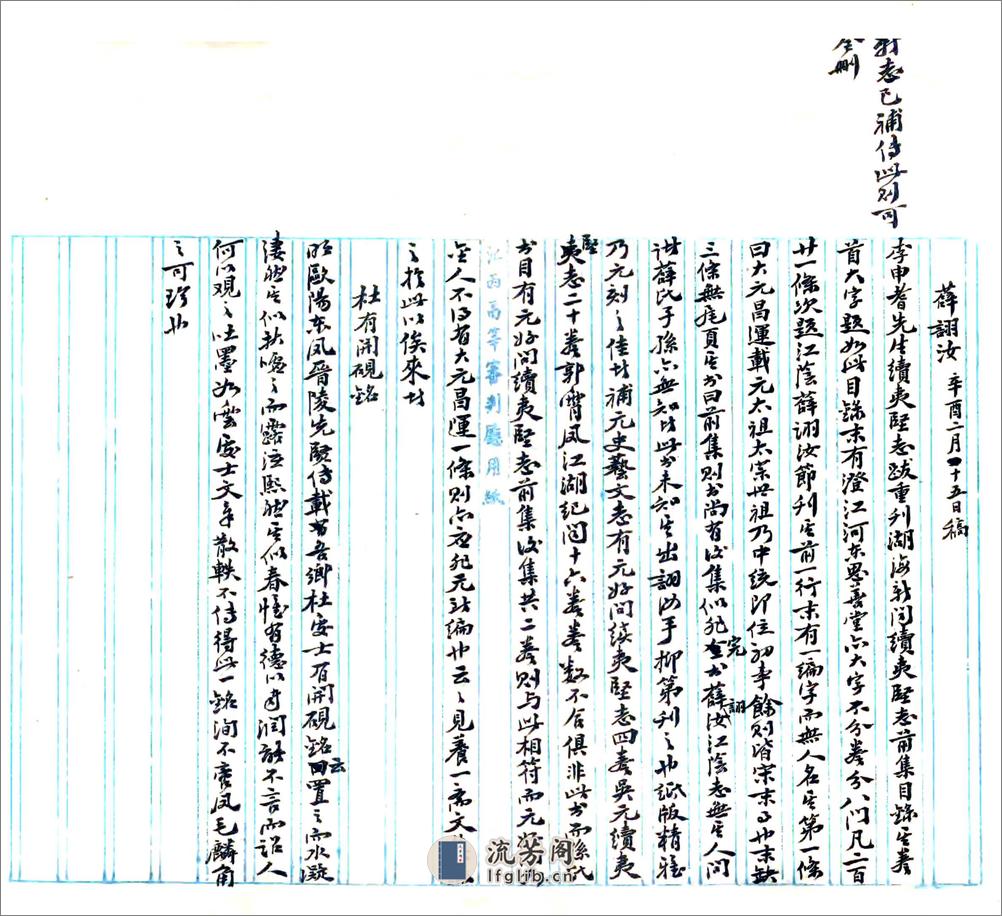 新志已補傳此則可
全刪
薛詡汝 辛酉二月十五日稿
李申耆先生續夷堅志跋重刊湖海新聞續夷堅志前集目錄其卷
首大字題如此目錄末有澄江河東思善堂亦大字不分卷分八門凡二百
廿一條次題江陰薛詡汝節刊其前一行末有一編字而無人名其第一條
曰大元昌運載元太祖太宗世祖乃中統即位初事餘則皆宋末事也末缺
三條無尾頁其書曰前集則書尚有後集似非完書薛詡汝江陰志無其人問
諸薛氏子孫亦無知者此書未知其出詡汝手抑第刊之也紙版精雅
乃元刻之佳者補元史藝文志有元好問續夷堅志四卷吳元續夷
堅志二十卷郭霄鳳江湖紀聞十六卷卷數不合俱非此書而孫氏
書目有元好問續夷堅志前集後集共二卷則与此相符而元
金人不得有大元昌運一條則亦應非元所編也云云見養一齋文
之於此以俟來者
江西高等審判廳用紙
杜有開硯銘
明歐陽东鳳晉陵先賢傳載吾鄉杜安士有開硯銘云置之而水凝
淒然其似秋噓之而露泫熙然其似春惟有德以自潤故不言而語人
何以觀之吐墨如雲安士文字散軼不傳得此一銘洵不啻鳳毛麟角
之可珍也
流芳阁
lfglib.cn